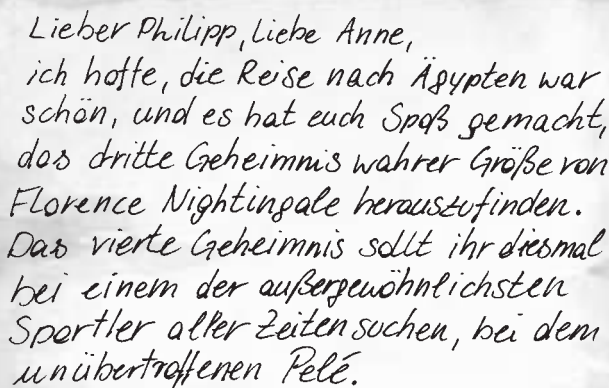 Lieber Philipp, liebe Anne,
ich hoffe, die Reise nach Ägypten war
schön, und es hat euch Spaß gemacht,
das dritte Geheimnis wahrer Größe von
Florence Nightingale herauszufinden.
Das vierte Geheimnis sollt ihr diesmal
bei einem der außergewöhnlichsten
Sportler aller Zeiten suchen, bei dem
unübertroffenen Pelé.